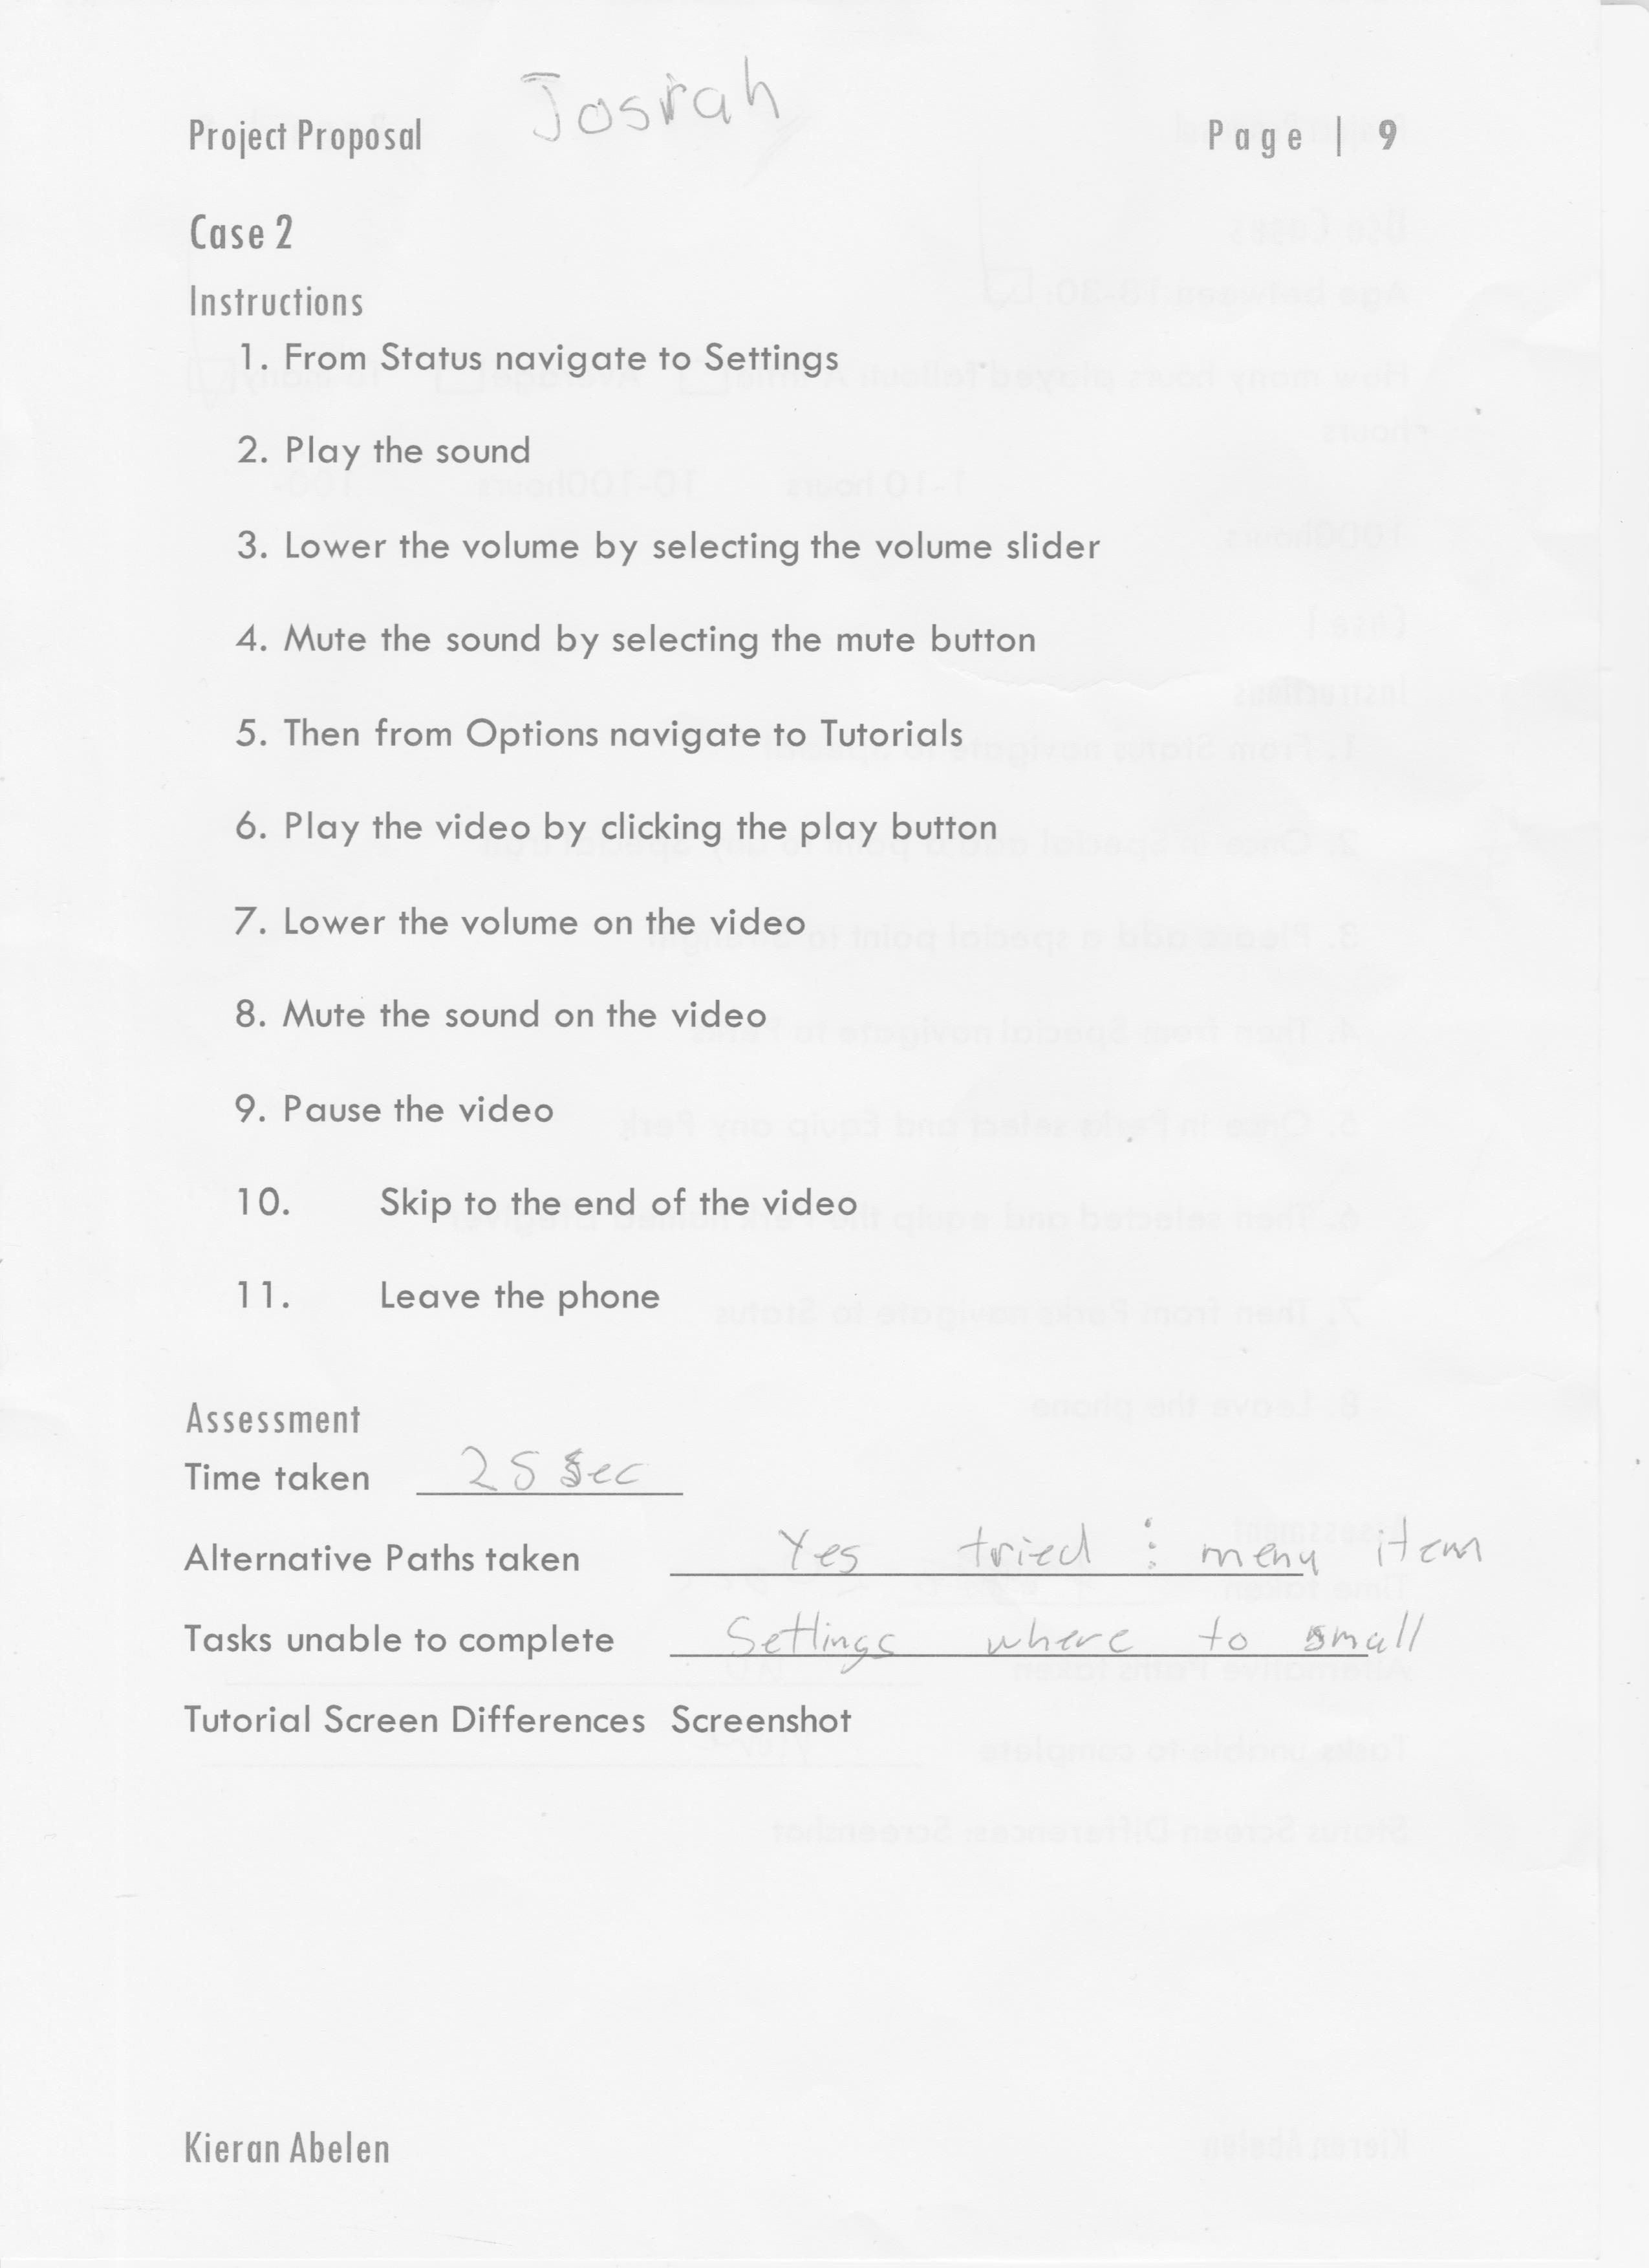 Josiah
Project Proposal Page | 9
Case 2
Instructions
1. From Status navigate to Settings
2. Play the sound
3. Lower the volume by selecting the volume slider
4. Mute the sound by selecting the mute button
5. Then from Options navigate to Tutorials
6. Play the video by clicking the play button
7. Lower the volume on the video
8. Mute the sound on the video
9. Pause the video
10. Skip to the end of the video
11. Leave the phone
Assessment
Time taken 25 sec
Alternative Paths taken Yes tried ⋮ menu item
Tasks unable to complete Settings where to small
Tutorial Screen Differences Screenshot
Kieran Abelen